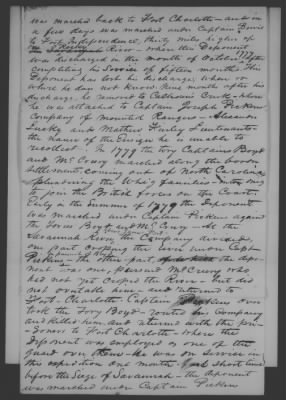 was marched back to Fort Charlotte – and in
a few days was marched under Captain Bowie
to Fort Independence, thirty miles higher up
the River – when the Deponent
was discharged in the month of October 1777 after
Completing his Service of fifteen months. This
Deponent has lost his discharge, when or
where he does not know. Nine months after his
discharge, he removed to Calhouns Creek – where
he was attached to Captain Joseph Pickens
Company of mounted Rangers – Alexander
Lusky and Mathew Finley Lieutenants –
the name of the Ensign he is unable to
recollect. In 1779 the tory Captains Boyd
and McCrury marched along the border
settlement, coming out of North Carolina
plundering the Whig families –
to join the British forces on the Coast –
Early in the Summer of 1779 the Deponent
was marched under Captain Pickens against
the Tories Boyd and McCrury – At the
Savannah River the Company divided,
one part crossing the river under Capt
Pickens – the other part, of which the depo-
nent was one, pursued McCrury who
had not yet crossed the River – but did
not overtake him – and returned to
Fort – Charlotte – Captain Pickens over
took the Tory Boyd – routed his Company
and killed him and returned with the pri-
– soners to Fort Charlotte – where the
Deponent was employed as one of the
guard over them – he was on service in
this expedition one month – A short time
before the Siege of Savannah – the deponent
was marched under Captain Pickens